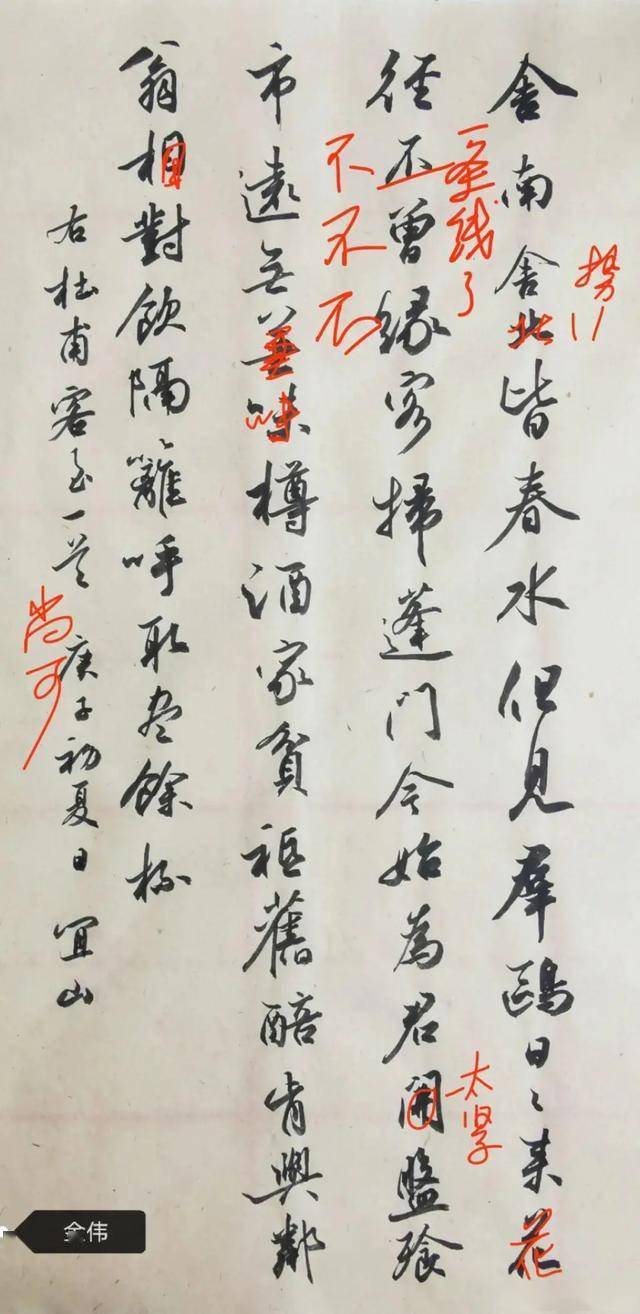 舍南舍北皆春水但見羣鷗日〻来花
徑不曾緣客掃蓬門今始為君開盤飱
市遠无兼味樽酒家貧祗舊醅肯與鄰
翁相對飲隔籬呼取盡餘杯
右杜甫客至一首 庚子初夏日 宜山
势
一条线了
不
不
不
太浮
尚可
金伟